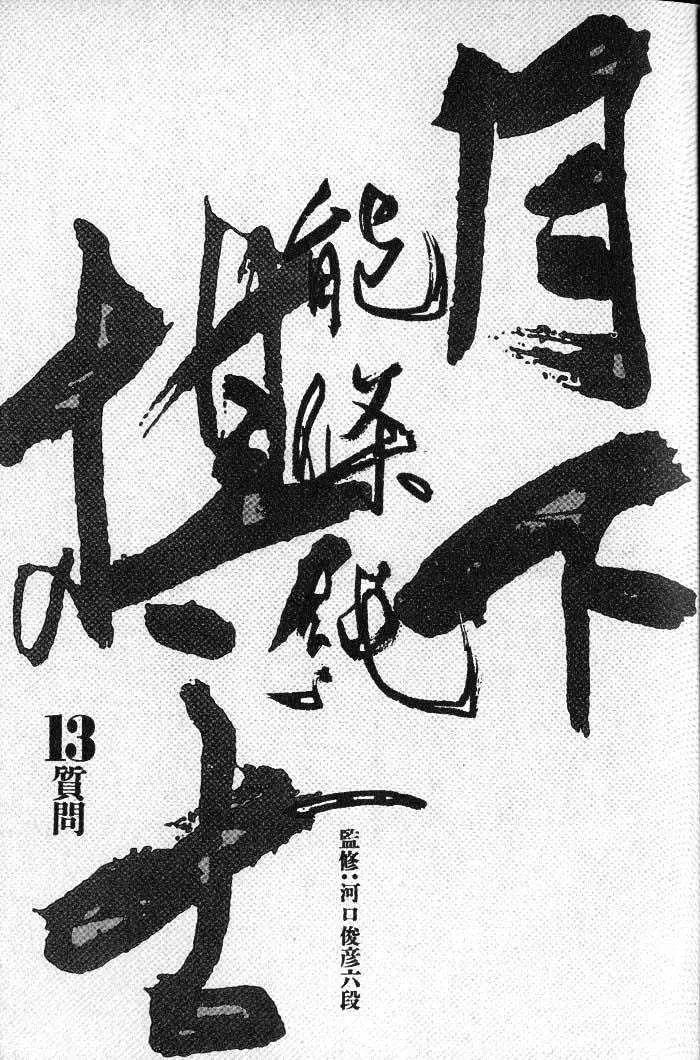 月下
棋士
能條純一
13
質問
監修:河口俊彦六段